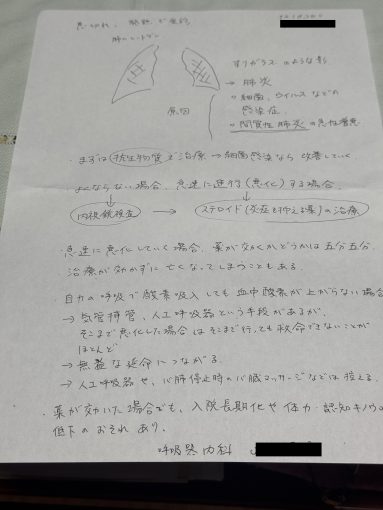 息切れ、発熱で受診
肺のレントゲン
すりガラスのような影
→ 肺炎
原因
細菌、ウイルスなどの
感染症
間質性肺炎の急性増悪
・まずは抗生物質で治療 → 細菌感染なら改善していく
よくならない場合、急速に進行(悪化)する場合、
内視鏡検査 → ステロイド(炎症を抑える薬)の治療
・急速に悪化していく場合、薬が効くかどうかは五分五分。
治療が効かずに亡くなってしまうこともある。
・自力の呼吸で酸素吸入しても血中酸素が上がらない場合
→ 気管挿管、人工呼吸器という手段があるが、
そこまで悪化した場合はそこまで行っても救命できないことが
ほとんど
→ 無益な延命につながる。
→ 人工呼吸器や、心肺停止時の心臓マッサージなどは控える。
・薬が効いた場合でも、入院長期化や体力・認知キノウの
低下のおそれあり。
呼吸器内科